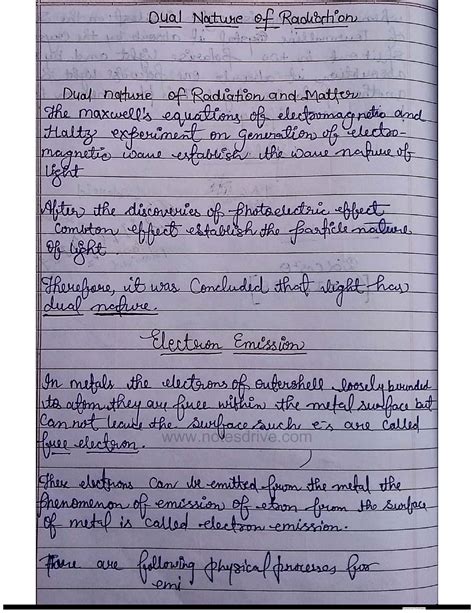 Dual Nature of Radiation
Dual nature of Radiation and Matter
The maxwell's equations of electromagnetic and
Haltz experiment on generation of electro-
magnetic wave establish the wave nature of
light
After the discoveries of photoelectric effect
Comton effect establish the particle nature
of light.
Therefore, it was Concluded that light has
dual nature.
Electron Emission
In metals the electrons of outershell loosely bounded
to atom they are free within the metal surface but
Can not leave the surface such e⁻s are called
www.notesdrive.com
free electron.
These electrons Can be emitted from the metal the
phenomenon of emission of from the surface
of metal is called electron emission.
There are following physical processes for
emi